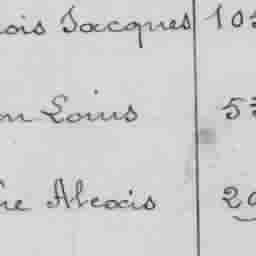 ois Jacques 10
on Louis 53
re Alexis 29